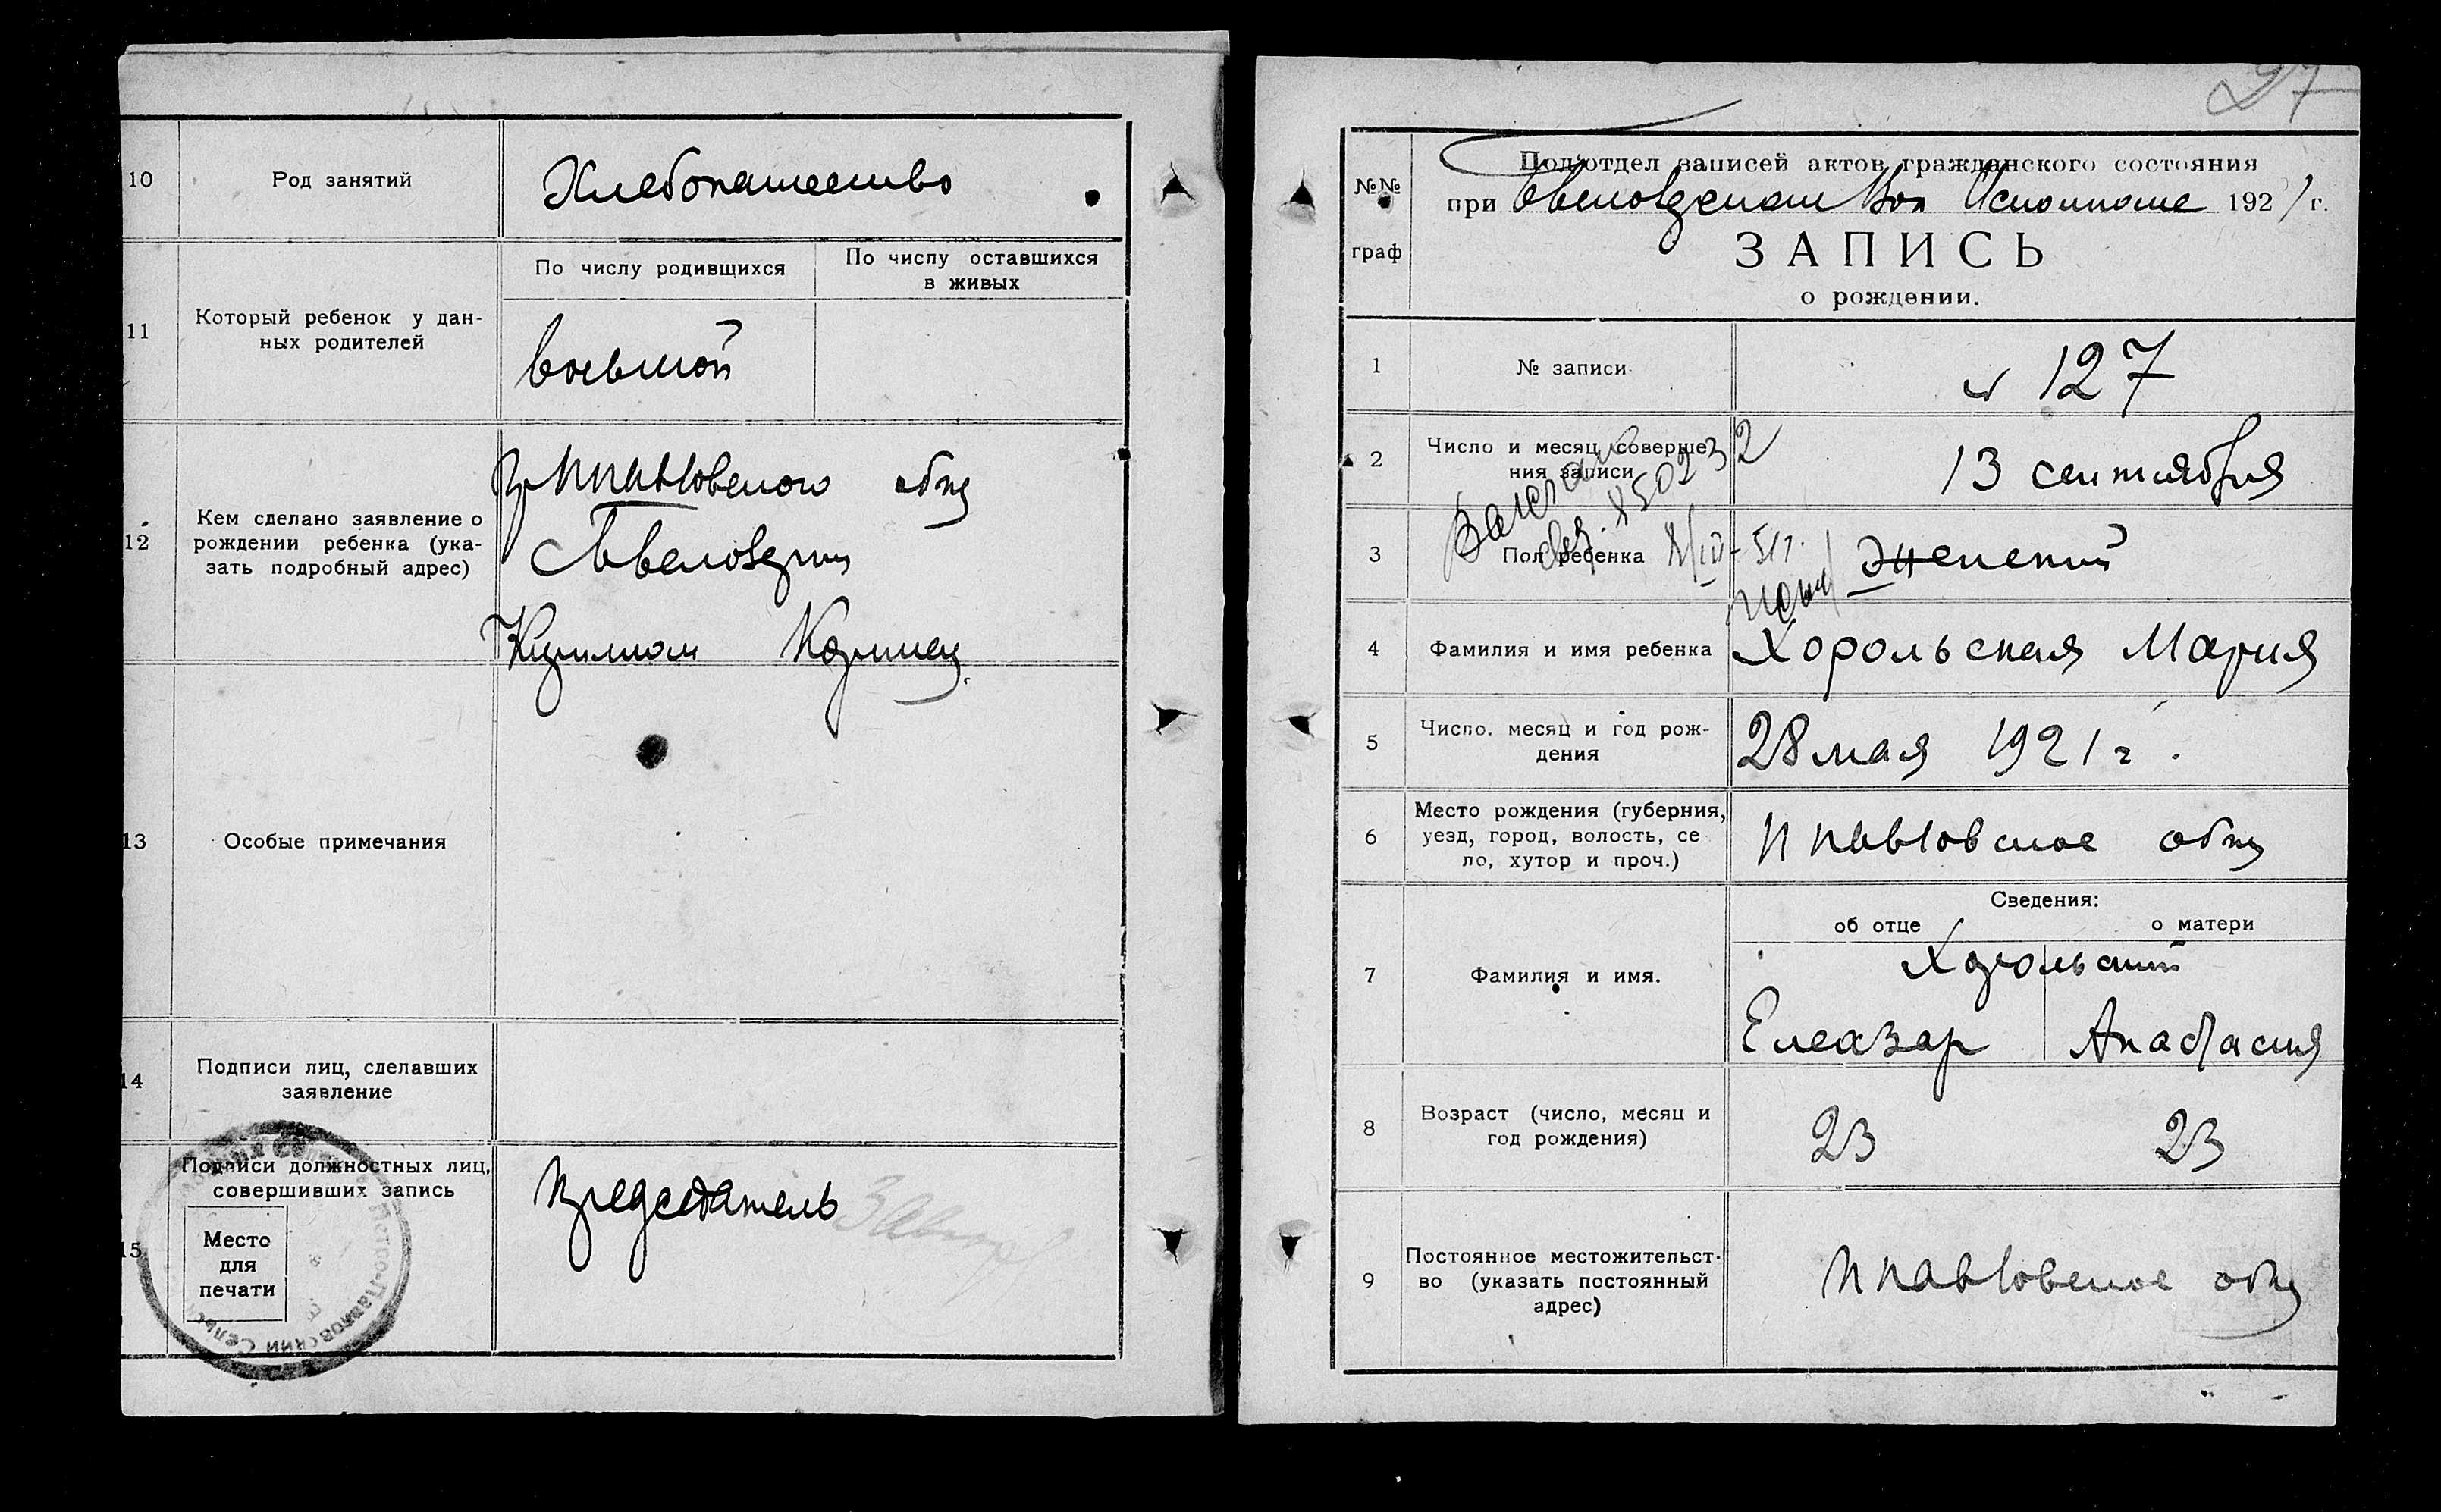 10
Род занятий
Хлебопашество
11
Который ребенок у дан-
ных родителей
По числу родивщихся
По числу оставшихся
в живых
восьмой
12
Кем сделано заявление о
рождении ребенка (ука-
зать подробный адрес)
гр Ппавловского общ
13
Особые примечания
14
Подписи лиц, сделавших
заявление
15
Подписи должностных лиц,
совершивших запись
Место
для
печати
Председатель
Петро-Павловский Сельск
27
№№
граф
Подотдел записей актов гражданского состояния
при Вол Исполкоме 1921 г.
ЗАПИСЬ
о рождении.
1
№ записи
№ 127
2
Число и месяц соверше-
ния записи
13 сентября
3
Пол ребенка
Женский
4
Фамилия и имя ребенка
Хорольская Мария
5
Число, месяц и год рож-
дения
28 мая 1921 г.
6
Место рождения (губерния,
уезд, город, волость, се
ло, хутор и проч.)
Ппавловское общ
Сведения:
об отце
о матери
7
Фамилия и имя.
Хорольский
Елеазар
Анастасия
8
Возраст (число, месяц и
год рождения)
23
23
9
Постоянное местожительст-
во (указать постоянный
адрес)
Ппавловское общ